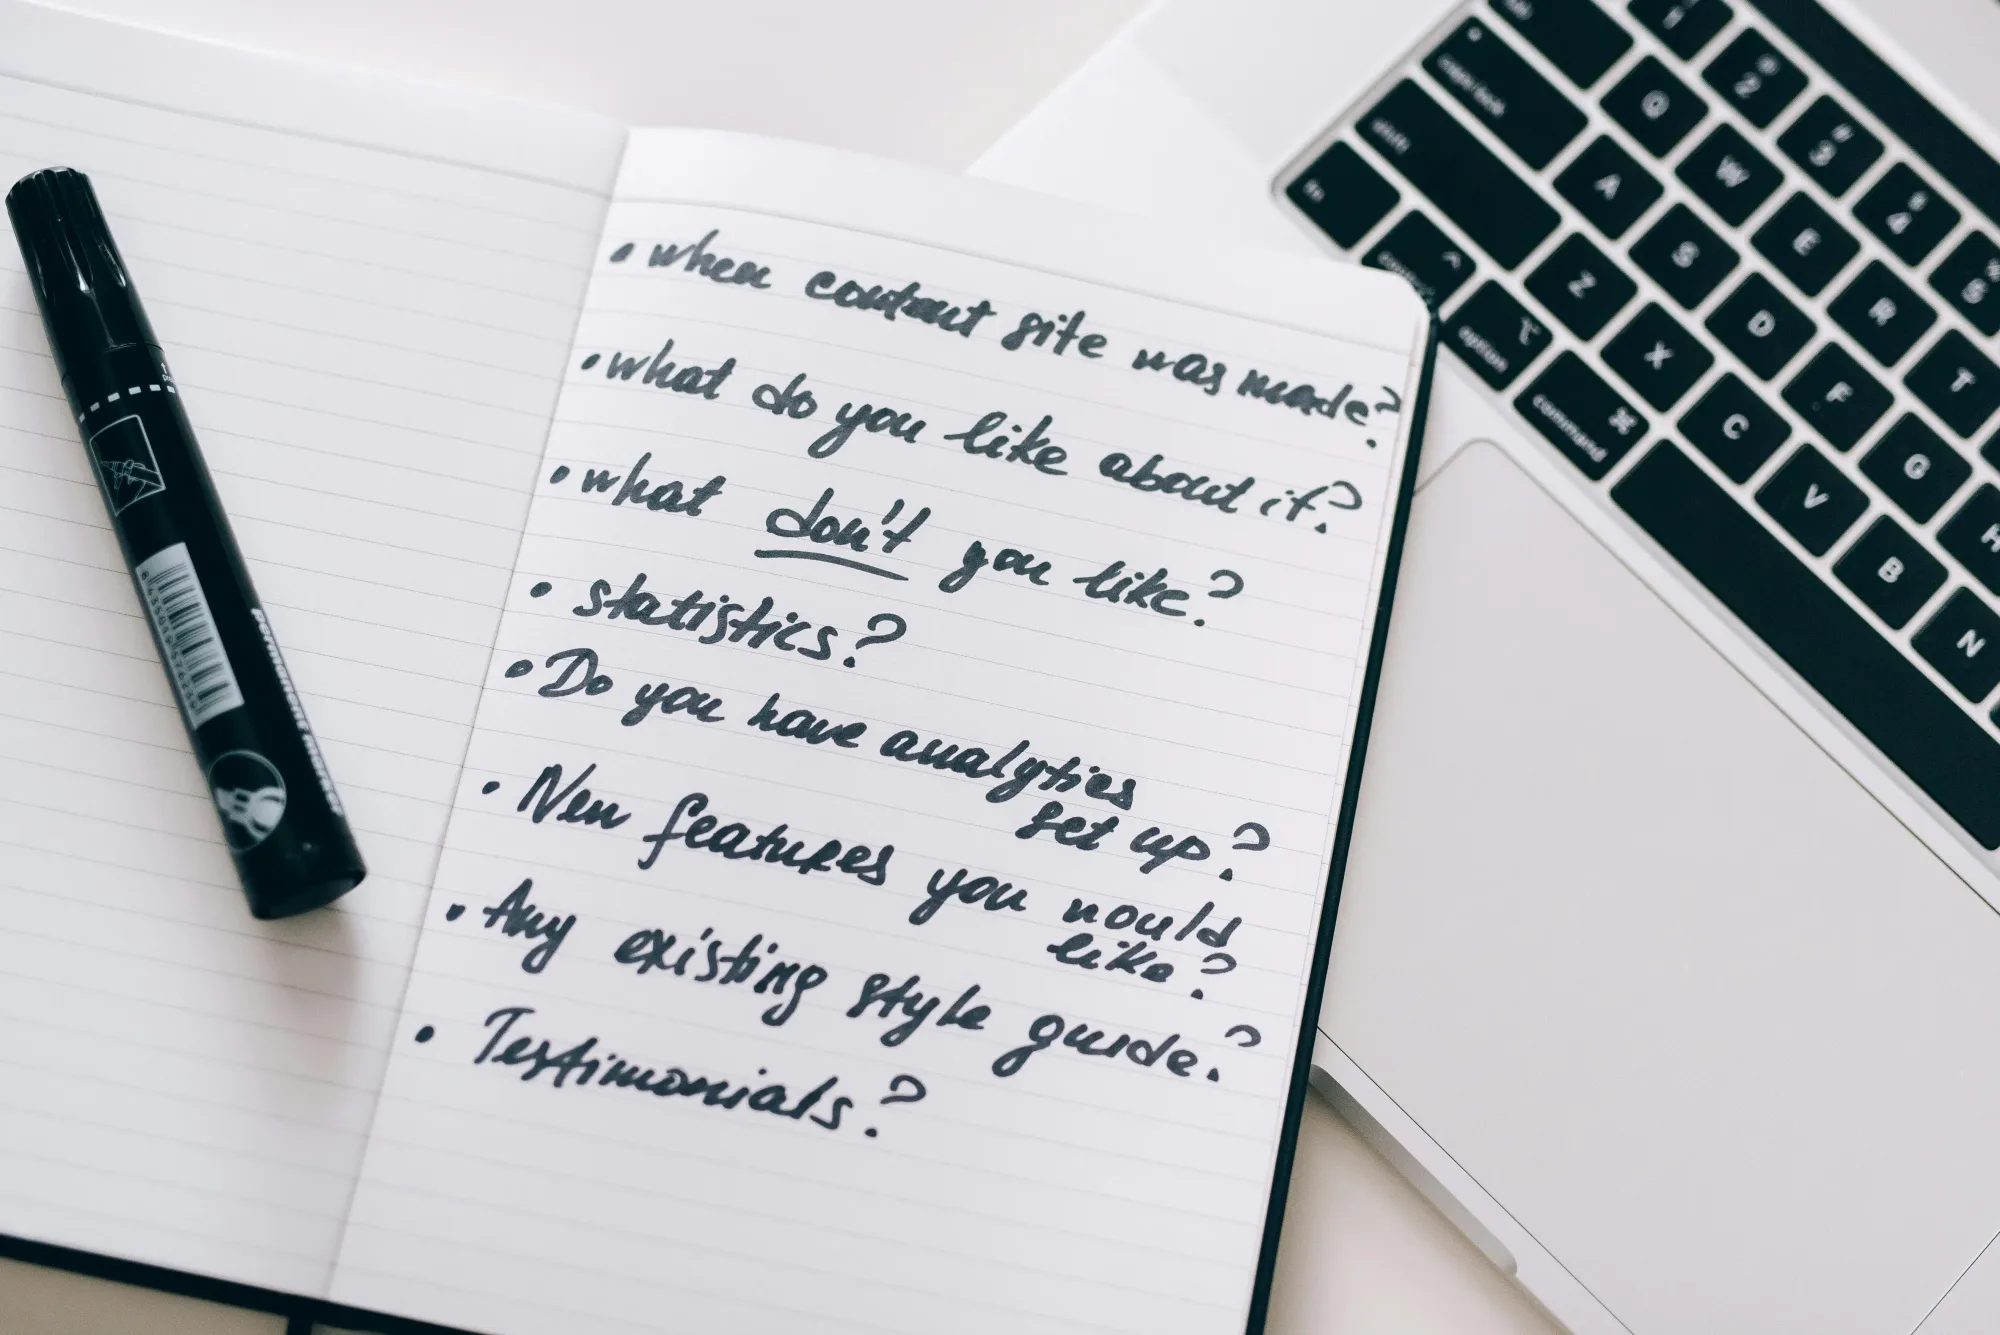 • when content site was made?
• what do you like about it?
• what don't you like?
• statistics?
• Do you have analytics
set up?
• New features you would
like?
• Any existing style guide?
• Testimonials?
permanent marker
1 @ 2 # 3 $ 4 % 5
Q W E R T
caps lock A S D F G H
shift Z X C V B N
fn control option command